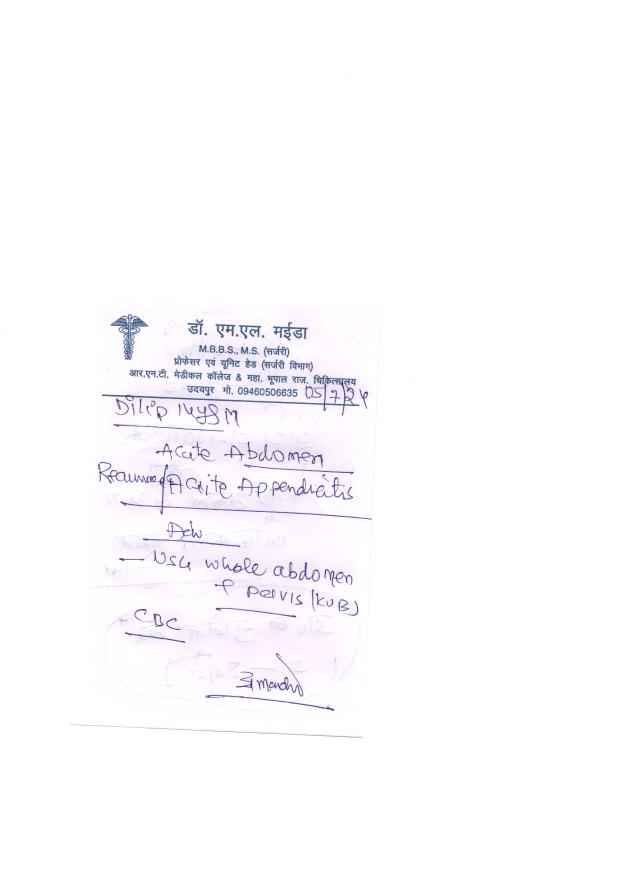 डॉ. एम.एल. मईडा
M.B.B.S., M.S. (सर्जरी)
प्रोफेसर एवं यूनिट हेड (सर्जरी विभाग)
आर.एन.टी. मेडीकल कॉलेज & महा. भूपाल राज. चिकित्सालय
उदयपुर मो. 09460506635 05/7/24
Dilip 14yr M
Acute Abdomen
Acute Appendicitis
Adv
— USG whole abdomen
+ pelvis (KUB)
CBC